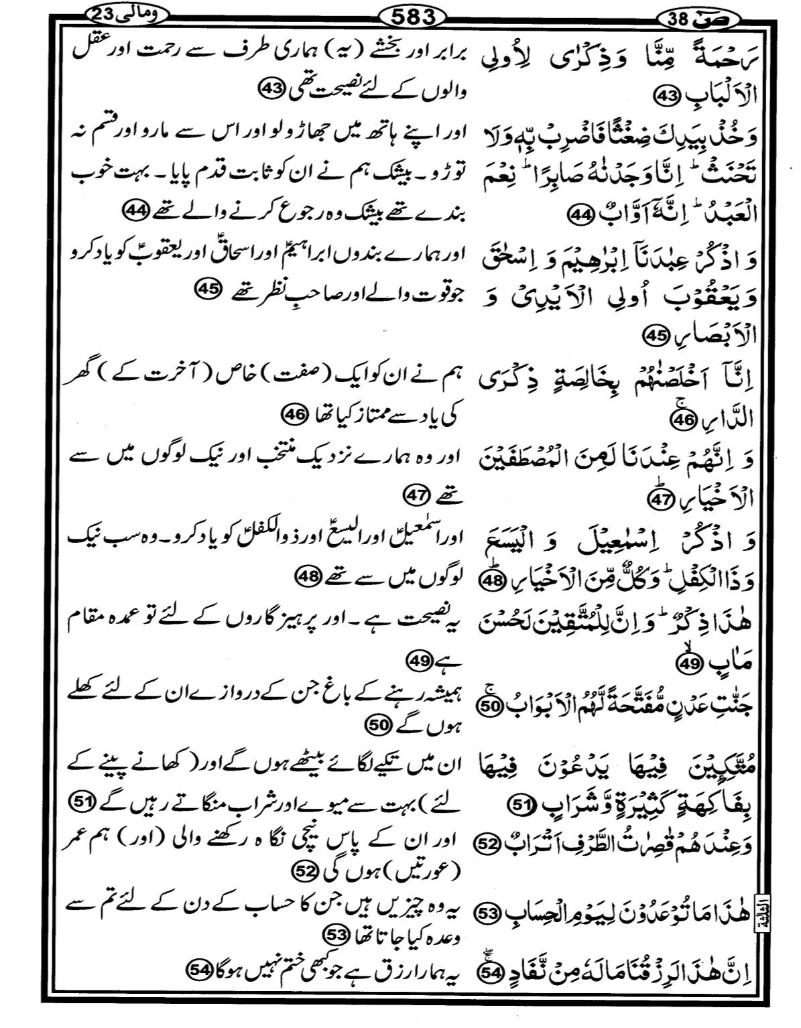 صٓ 38
583
ومالی 23
رَحْمَةً مِّنَّا وَذِكْرٰى لِاُولِى
الْاَلْبَابِ 43
وَخُذْ بِيَدِكَ ضِغْثًا فَاضْرِبْ بِّهٖ وَلَا
تَحْنَثْ ؕ اِنَّا وَجَدْنٰهُ صَابِرًا ؕ نِعْمَ
الْعَبْدُ ؕ اِنَّهٗۤ اَوَّابٌ 44
وَ اذْكُرْ عِبٰدَنَاۤ اِبْرٰهِيْمَ وَ اِسْحٰقَ
وَ يَعْقُوْبَ اُولِى الْاَيْدِىْ وَ
الْاَبْصَارِ 45
اِنَّاۤ اَخْلَصْنٰهُمْ بِخَالِصَةٍ ذِكْرَى
الدَّارِ ۚ 46
وَ اِنَّهُمْ عِنْدَنَا لَمِنَ الْمُصْطَفَيْنَ
الْاَخْيَارِ ؕ 47
وَ اذْكُرْ اِسْمٰعِيْلَ وَ الْيَسَعَ
وَذَا الْكِفْلِ ؕ وَكُلٌّ مِّنَ الْاَخْيَارِ ؕ 48
هٰذَا ذِكْرٌ ؕ وَاِنَّ لِلْمُتَّقِيْنَ لَحُسْنَ
مَاٰبٍ ۙ 49
جَنّٰتِ عَدْنٍ مُّفَتَّحَةً لَّهُمُ الْاَبْوَابُ ۚ 50
مُتَّكِـِٕيْنَ فِيْهَا يَدْعُوْنَ فِيْهَا
بِفَاكِهَةٍ كَثِيْرَةٍ وَّشَرَابٍ 51
وَعِنْدَهُمْ قٰصِرٰتُ الطَّرْفِ اَتْرَابٌ 52
هٰذَا مَا تُوْعَدُوْنَ لِيَوْمِ الْحِسَابِ 53
اِنَّ هٰذَا لَرِزْقُنَا مَا لَهٗ مِنْ نَّفَادٍ 54
برابر اور بخشے (یہ) ہماری طرف سے رحمت اور عقل
والوں کے لئے نصیحت تھی 43
اور اپنے ہاتھ میں جھاڑو لو اور اس سے مارو اور قسم نہ
توڑو۔ بیشک ہم نے ان کو ثابت قدم پایا۔ بہت خوب
بندے تھے بیشک وہ رجوع کرنے والے تھے 44
اور ہمارے بندوں ابراہیمؑ اور اسحاقؑ اور یعقوبؑ کو یاد کرو
جو قوت والے اور صاحبِ نظر تھے 45
ہم نے ان کو ایک (صفت) خاص (آخرت کے) گھر
کی یاد سے ممتاز کیا تھا 46
اور وہ ہمارے نزدیک منتخب اور نیک لوگوں میں سے
تھے 47
اور اسمٰعیلؑ اور الیسعؑ اور ذوالکفلؑ کو یاد کرو۔ وہ سب نیک
لوگوں میں سے تھے 48
یہ نصیحت ہے۔ اور پرہیزگاروں کے لئے تو عمدہ مقام
ہے 49
ہمیشہ رہنے کے باغ جن کے دروازے ان کے لئے کھلے
ہوں گے 50
ان میں تکیے لگائے بیٹھے ہوں گے اور (کھانے پینے کے
لئے) بہت سے میوے اور شراب منگاتے رہیں گے 51
اور ان کے پاس نیچی نگاہ رکھنے والی (اور) ہم عمر
(عورتیں) ہوں گی 52
یہ وہ چیزیں ہیں جن کا حساب کے دن کے لئے تم سے
وعدہ کیا جاتا تھا 53
یہ ہمارا رزق ہے جو کبھی ختم نہیں ہوگا 54
الثلثة